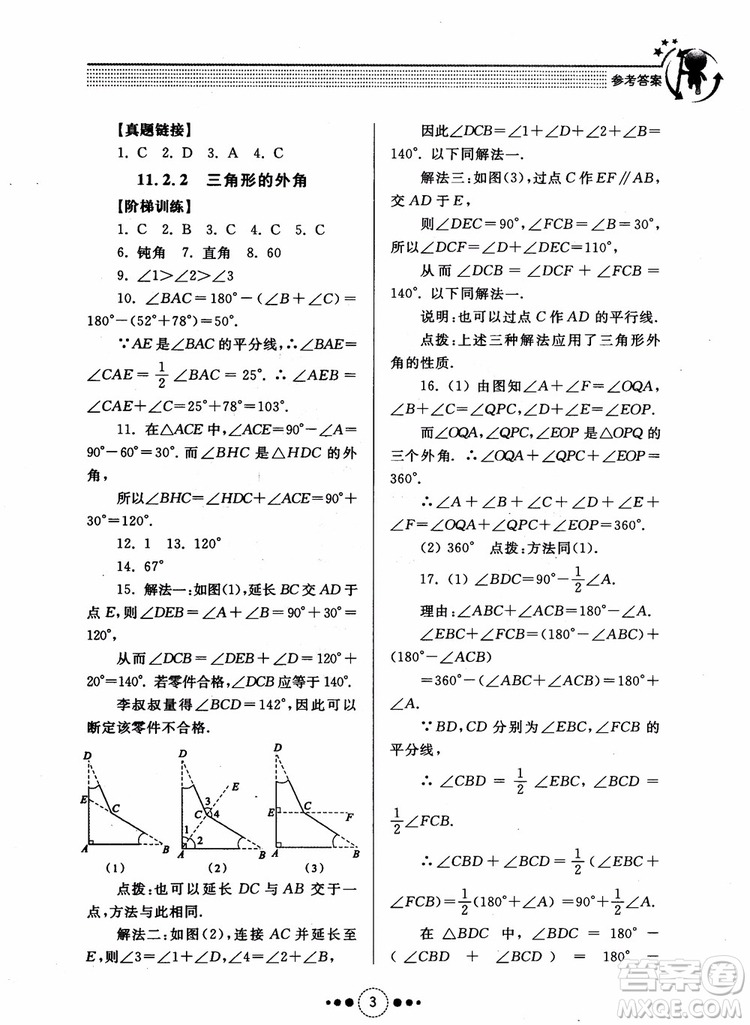 参考答案
【真题链接】
1. C 2. D 3. A 4. C
11.2.2 三角形的外角
【阶梯训练】
1. C 2. B 3. D 4. C 5. C
6. 钝角 7. 直角 8. 60
9. ∠1>∠2>∠3
10. ∠BAC=180°-(∠B+∠C)=
180°-(52°+78°)=50°.
∵AE是∠BAC的平分线, ∴∠BAE=
∠CAE=1/2∠BAC=25°. ∴∠AEB=
∠CAE+∠C=25°+78°=103°.
11. 在△ACE中,∠ACE=90°-∠A=
90°-60°=30°. 而∠BHC是△HDC的外
角,
所以∠BHC=∠HDC+∠ACE=90°+
30°=120°.
12. 1 13. 120°
14. 67°
15. 解法一:如图(1),延长BC交AD于
点E,则∠DEB=∠A+∠B=90°+30°=
120°,
从而∠DCB=∠DEB+∠D=120°+
20°=140°. 若零件合格,∠DCB应等于140°.
李叔叔量得∠BCD=142°,因此可以
断定该零件不合格.
D
E
C
A
B
(1)
D
E
3
C
4
1
2
A
B
(2)
D
E
C
F
A
B
(3)
点拨:也可以延长DC与AB交于一
点,方法与此相同.
解法二:如图(2),连接AC并延长至
E,则∠3=∠1+∠D,∠4=∠2+∠B,
因此∠DCB=∠1+∠D+∠2+∠B=
140°. 以下同解法一.
解法三:如图(3),过点C作EF∥AB,
交AD于E,
则∠DEC=90°,∠FCB=∠B=30°,
所以∠DCF=∠D+∠DEC=110°,
从而∠DCB=∠DCF+∠FCB=
140°. 以下同解法一.
说明:也可以过点C作AD的平行线.
点拨:上述三种解法应用了三角形外
角的性质.
16. (1) 由图知∠A+∠F=∠OQA,
∠B+∠C=∠QPC,∠D+∠E=∠EOP.
而∠OQA,∠QPC,∠EOP是△OPQ的
三个外角. ∴∠OQA+∠QPC+∠EOP=
360°.
∴∠A+∠B+∠C+∠D+∠E+
∠F=∠OQA+∠QPC+∠EOP=360°.
(2) 360° 点拨:方法同(1).
17. (1) ∠BDC=90°-1/2∠A.
理由:∠ABC+∠ACB=180°-∠A.
∠EBC+∠FCB=(180°-∠ABC)+
(180°-∠ACB)
=360°-(∠ABC+∠ACB)=180°+
∠A.
∵BD,CD分别为∠EBC,∠FCB的
平分线,
∴∠CBD=1/2∠EBC,∠BCD=
1/2∠FCB.
∴∠CBD+∠BCD=1/2(∠EBC+
∠FCB)=1/2(180°+∠A)=90°+1/2∠A.
在△BDC中,∠BDC=180°-
(∠CBD+∠BCD)=180°-
3
答案圈
MXQE.COM